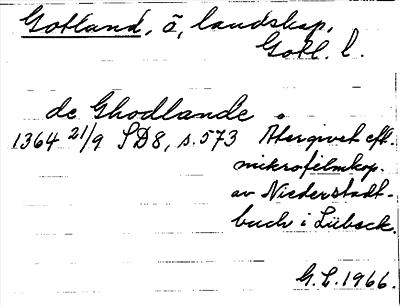 Gotland, ö, landskap,
Gotl. l.
de Ghodlande
1364 21/9 SD8, s. 573 Återgivet eft.
mikrofilmkop.
av Niederstadt-
buch i Lübeck.
G.L. 1966.